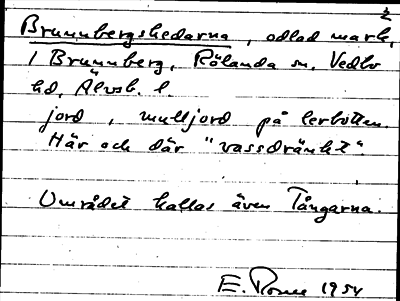 2
Brunnbergshedarna, odlad mark,
i Brunnberg, Rölanda sn, Vedbo
hd, Älvsb. l.
jord, mulljord på lerbotten.
Här och där "vassdränkt".
Området kallas även Tångarna.
E. 1954